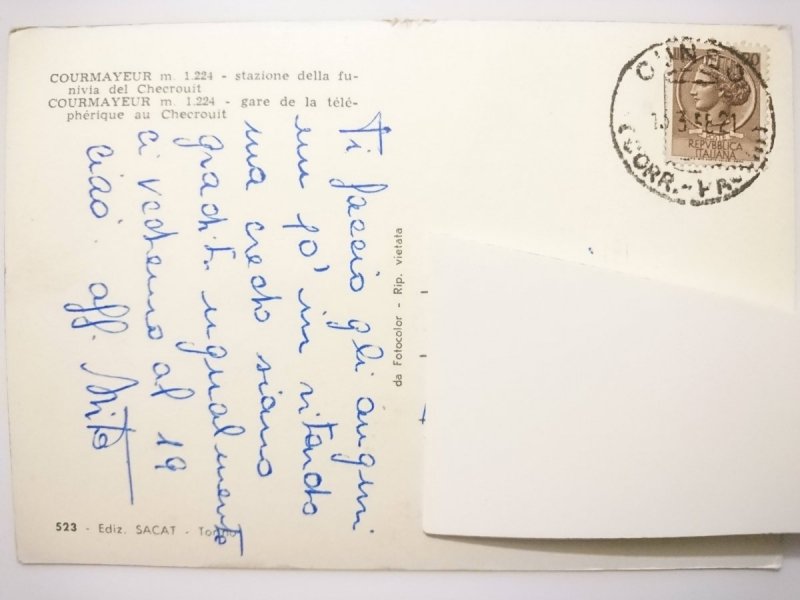 COURMAYEUR m. 1.224 - stazione della fu-
nivia del Checrouit
COURMAYEUR m. 1.224 - gare de la télé-
phérique au Checrouit
Ti faccio gli auguri
un po' in ritardo
ma credo siano
graditi ugualmente
ci vedremo al 19
ciao' aff.
da Fotocolor - Rip. vietata
523 - Ediz. SACAT - Torino
CUNEO
(CORR.-
REPVBBLICA
ITALIANA